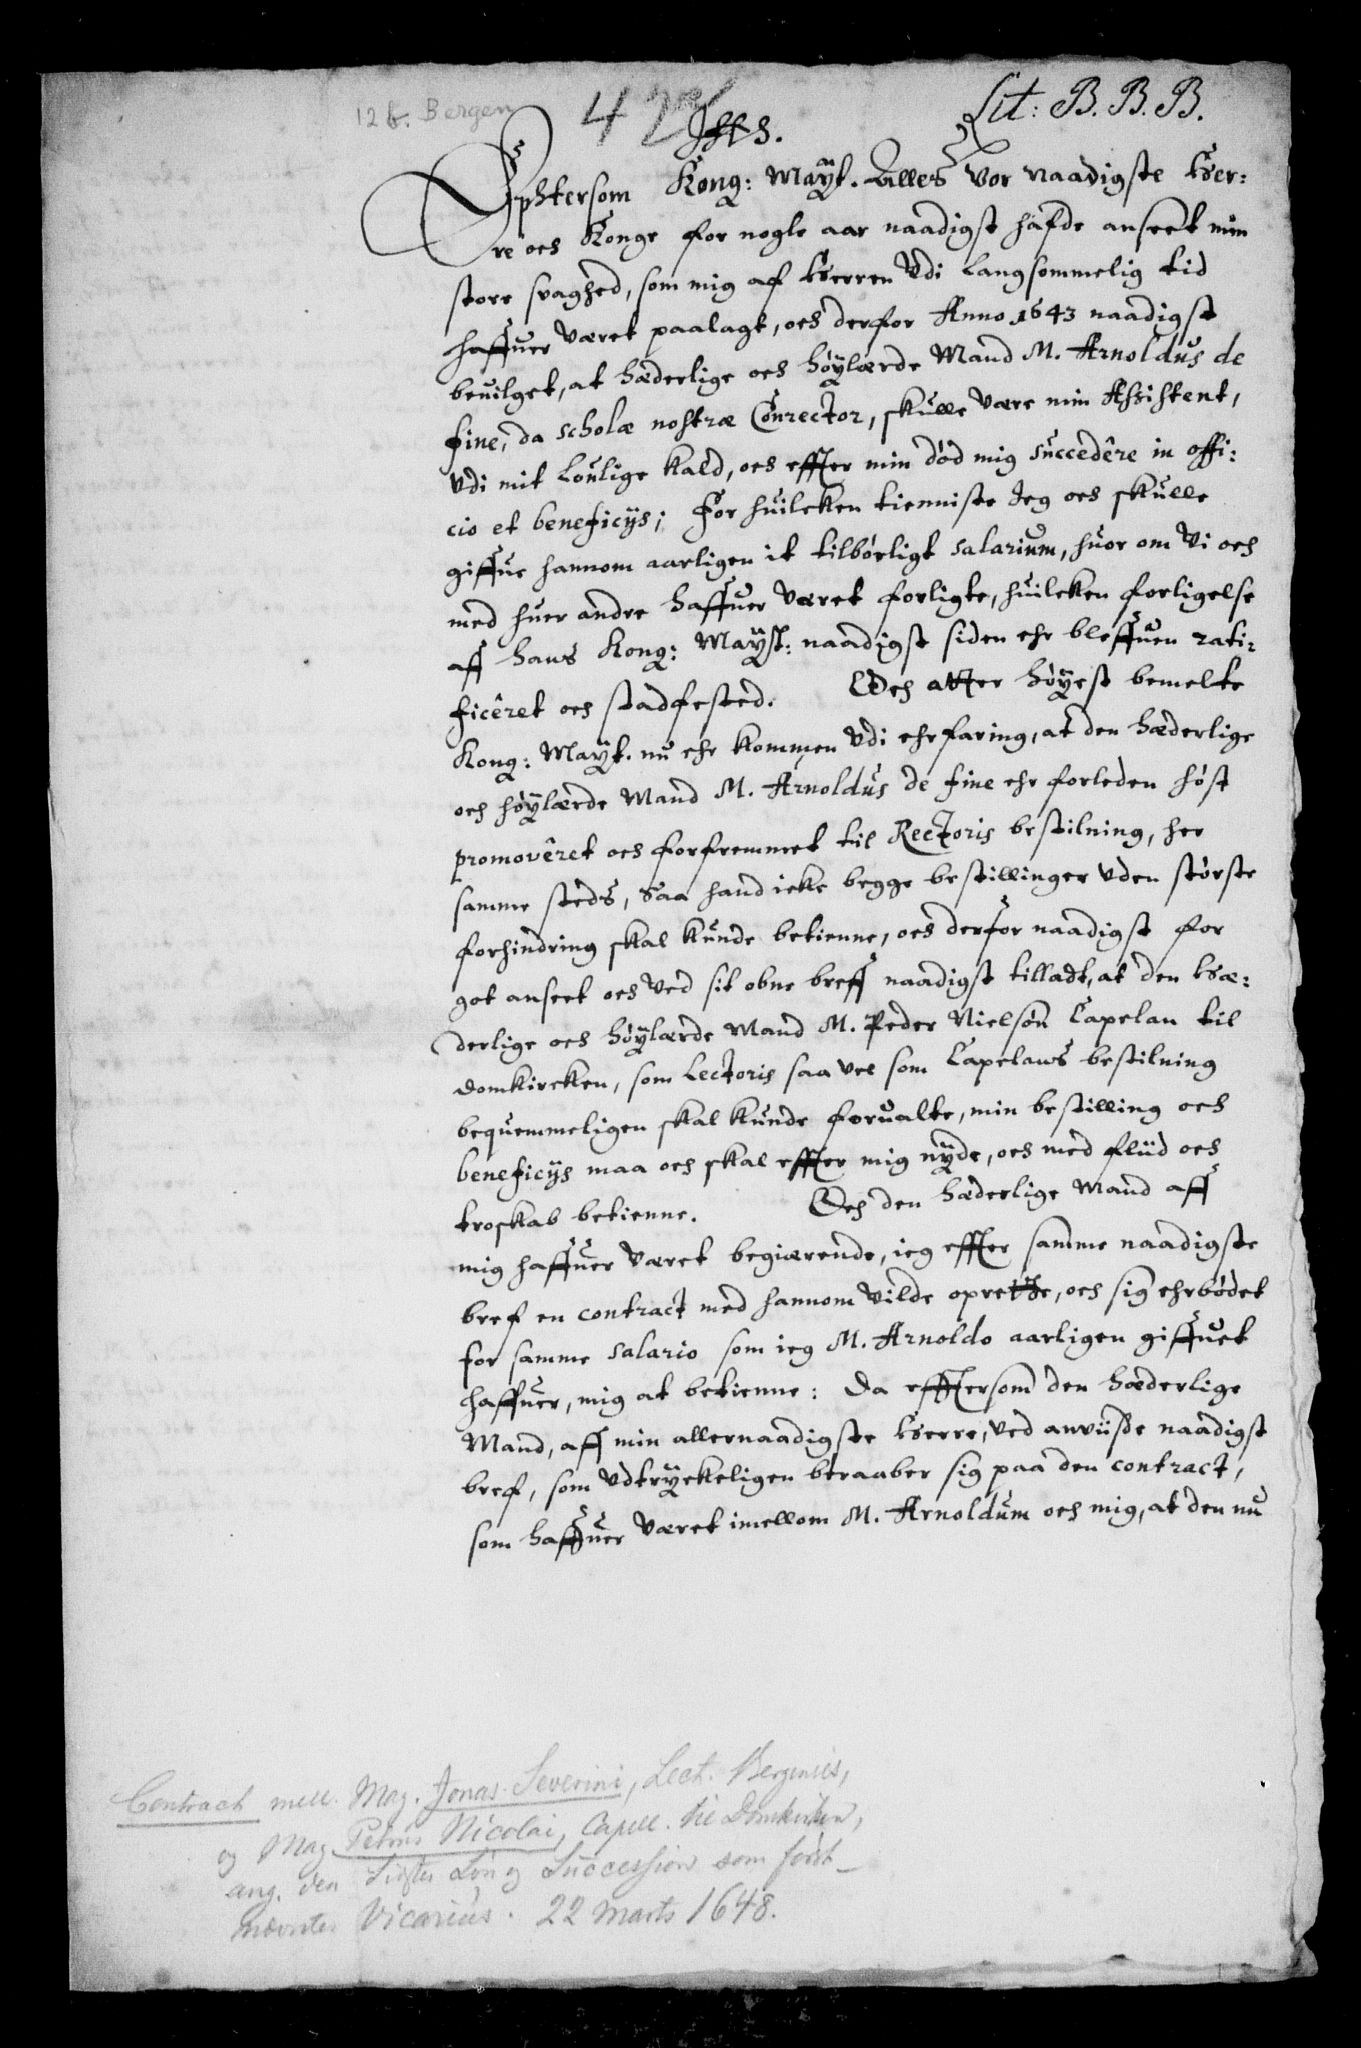 12 b. Bergen
42
Lit: B. B. B.
Jhs.
Ephtersom Kong: Mayt. Alles Vor Naadigste Her:
re och Konge for nogle aar naadigst hafde anseet min
store svaghed, som mig af Herren Udi Langsommelig tid
haffuer Været paalagt, och derfor Anno 1643 naadigst
beuilget, at Hæderlige och Höylærde Mand M. Arnoldus de
fine, da scholæ nostræ Conrector, skulle Være min Assistent,
Udi mit Loulige kald, och effter min död mig succedêre in offi:
cio et beneficijs; For huilcken tienniste Jeg och skulle
giffue hannom aarligen it tilbörligt salarium, huor om Vi och
med huer andre haffuer Været forligte, huilcken forligelse
aff hans Kong: Mayst: naadigst siden ehr bleffuen rati:
ficêret och stadfested. Och atter höyest bemelte
Kong: Mayt. nu ehr kommen Udi ehrfaring, at den Hæderlige
och höylærde Mand M. Arnoldus de fine ehr forleden höst
promovêret och forfremmet til Rectoris bestilning, her
samme steds, Saa hand icke begge bestillinger Uden störste
forhindring skal kunde betienne, och derfor naadigst for
got anseet och Ved sit obne breff naadigst tilladt, at den Hæ:
derlige och Höylærde Mand M. Peder Nielsön Capelan til
domkircken, som Lectoris saa vel som Capelans bestilning
bequemmeligen skal kunde forualte, min bestilling och
beneficijs maa och skal effter mig nyde, och med fliid och
troskab betienne. Och den Hæderlige Mand aff
mig haffuer Været begiærende, ieg effter samme naadigste
bref en contract med hannom Vilde oprette, och sig ehrbödet
for samme salario som ieg M. Arnoldo aarligen giffuet
haffuer, mig at betienne: Da efftersom den Hæderlige
Mand, aff min allernaadigste Herre, Ved anviiste naadigst
bref, som Udtryckeligen beraaber sig paa den contract,
som haffuer Været imellom M. Arnoldum och mig, at den nu
Contract mell. Mag. Jonas Severini, Lect. Bergensis,
og Mag. Petrus Nicolai, Capell. til Domkirken,
ang. den Sidstes Løn og Succession som først-
nævntes Vicarius. 22 Marts 1648.